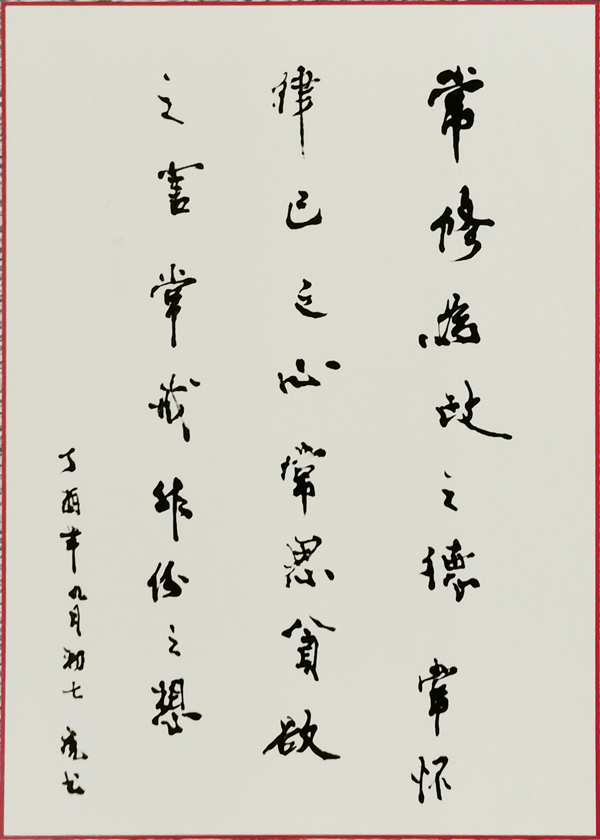 常修為政之德常怀
律己之心常思貪欲
之害常戒非份之想
丁酉年九月初七